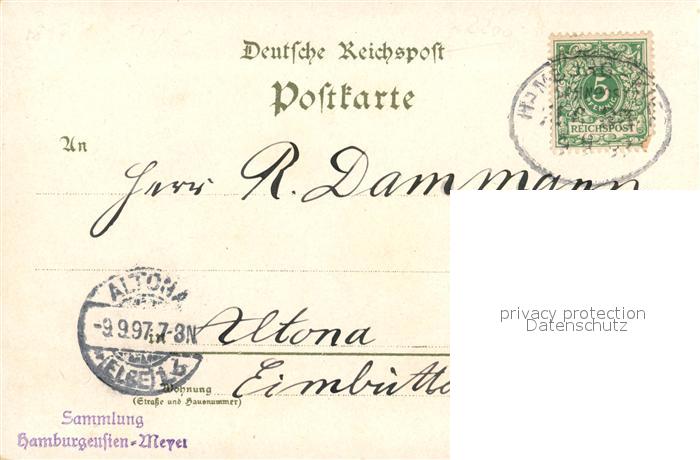 Deutsche Reichspost
Postkarte
5
PFENNIG
REICHSPOST
An
Herr R. Dammann
privacy protection
Datenschutz
ALTONA
-9.9.97.7-3N
(ELBE) 1 b
in Altona
Wohnung
(Straße und Hausnummer)
Eimbütte
Sammlung
Hamburgensien-Meyer